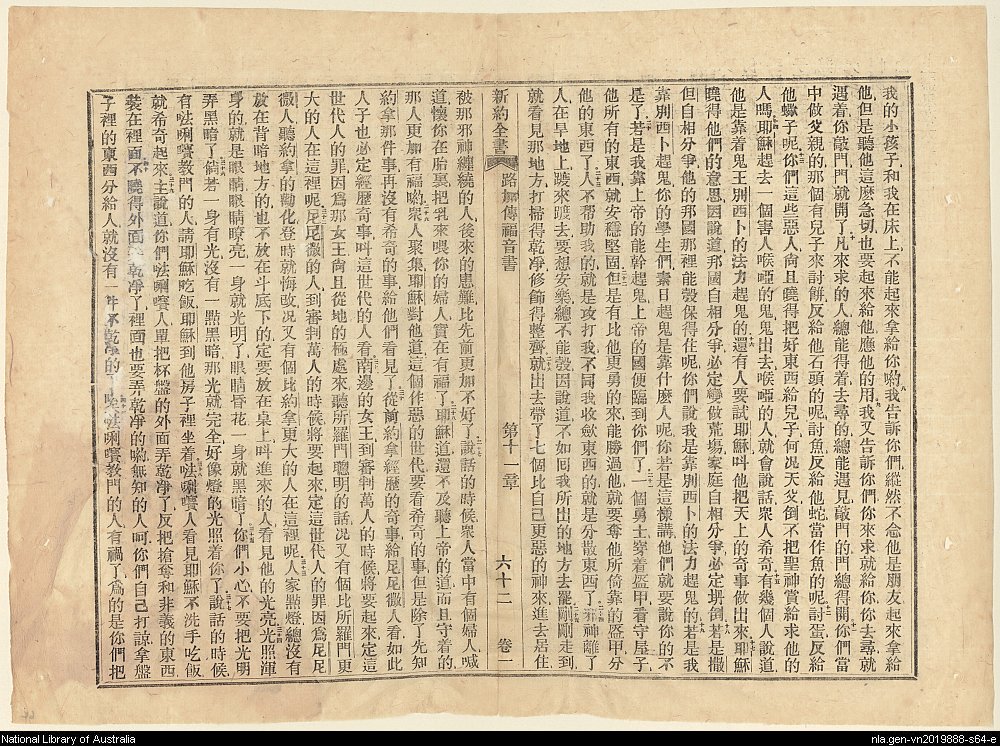 我的小孩子和我在床上不能起來拿給你喲我告訴你們縱然不念他是朋友起來拿給
他但是聽他這麽急切也要起來給他應他的用我又告訴你們你來求就給你你去尋就
遇着你敲門門就開了凡來求的人總能得着去尋的總能遇見敲門的門總得開你們當
中做父親的那個有兒子來討餅反給他石頭的呢討魚反給他蛇當作魚的呢討蛋反給
他蠍子呢你們這些惡人尙且曉得把好東西給兒子何况天父倒不把聖神賞給求他的
人嗎耶穌趕去一個害人喉啞的鬼鬼出去喉啞的人就會說話衆人希奇有幾個人說道
他是靠着鬼王别西卜的法力趕鬼的還有人要試耶穌呌他把天上的奇事做出來耶穌
曉得他們的意思因說道那國自相分爭必定變做荒塲家庭自相分爭必定坍倒若是撒
但自相分爭他的那國那裡能彀保得住呢你們說我是靠别西卜的法力趕鬼的若是我
靠别西卜趕鬼你的學生們素日趕鬼是靠什麽人呢你若是這樣講他們就要說你的不
是了若是我靠上帝的能幹趕鬼上帝的國便臨到你們了一個勇士穿着盔甲看守屋子
他所有的東西就安穩堅固但是有比他更勇的來能勝過他就要奪他所倚靠的盔甲分
他的東西了人不帮助我的就是攻打我不同我收歛東西的就是分散東西了邪神離了
人在旱地上踱來踱去要想安樂總不能彀因說道不如回我所出的地方去罷剛剛走到
就看見那地方打掃得乾凈修飾得整齊就出去帶了七個比自己更惡的神來進去居住
新約全書 路加傳福音書 第十一章 六十二 卷一
被那邪神纏繞的人後來的患難比先前更加不好了說話的時候衆人當中有個婦人喊
道懷你在胎裏把乳來喂你的婦人實在有福了耶穌道還不及聽上帝的道而且守着的
那人更加有福喲衆人聚集耶穌對他道這個作惡的世代要看希奇的事但是除了先知
約拿那件事再沒有希奇的事給他們看見了從前約拿經歷的奇事給尼尼微人看如此
人子也必定經歷奇事呌這世代的人看南邊的女王到審判萬人的時候將要起來定這
世代人的罪因爲那女王尙且從地的極處來聽所羅門聰明的話况又有個比所羅門更
大的人在這裡呢尼尼微的人到審判萬人的時候將要起來定這世代人的罪因爲尼尼
微人聽約拿的勸化登時就悔改况又有個比約拿更大的人在這裡呢人家點燈總沒有
放在背暗地方的也不放在斗底下的定要放在桌上呌進來的人看見他的光亮光照渾
身的就是眼睛眼睛瞭亮一身就光明了眼睛昏花一身就黑暗了你們小心不要把光明
弄黑暗了倘若一身有光沒有一點黑暗那光就完全好像燈的光照着你了說話的時候
有㕵唎㘔教門的人請耶穌吃飯耶穌到他房子裡坐着㕵唎㘔人看見耶穌不洗手吃飯
就希奇起來主說道你們㕵唎㘔人單把杯盤的外面弄乾凈了反把搶奪和非義的東西
裝在裡面不曉得外面弄乾凈了裡面也要弄乾凈的喲無知的人呵你們自己打諒拿盤
子裡的東西分給人就沒有一件不乾凈的了唉㕵唎㘔教門的人有禍了爲的是你們把
National Library of Australia
nla.gen-vn2019888-s64-e